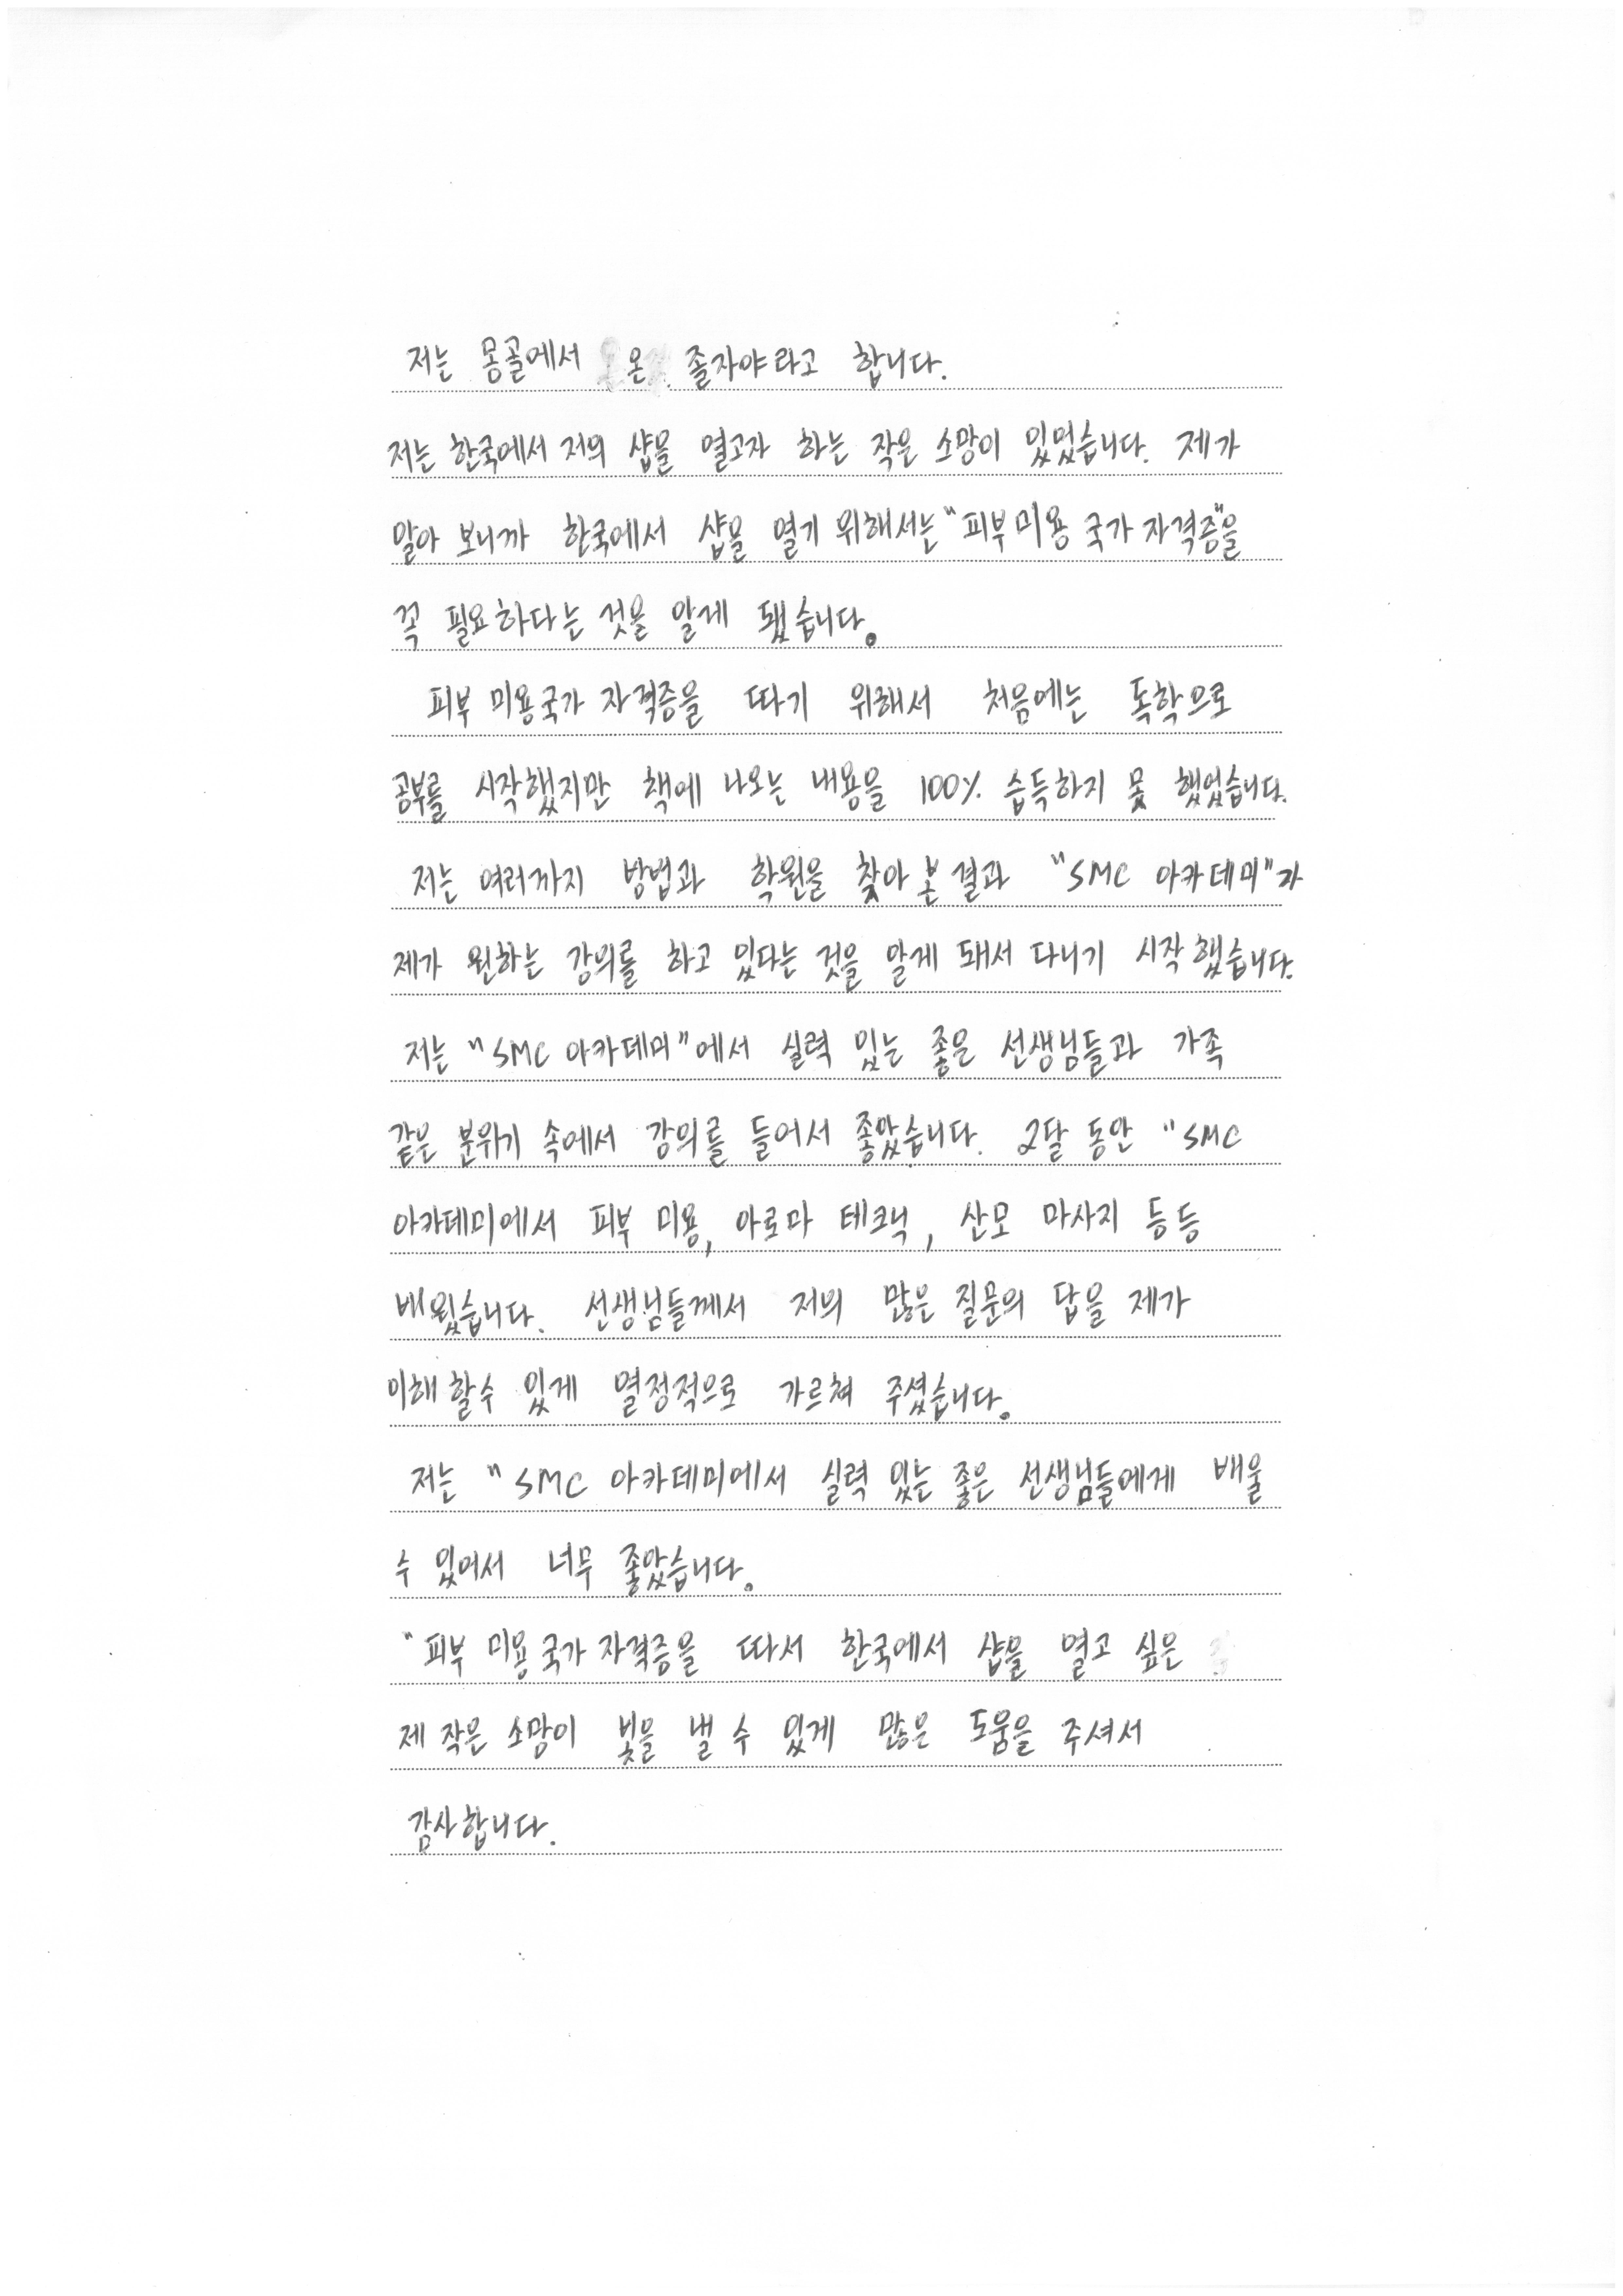 저는 몽골에서 온 졸자야라고 합니다.
저는 한국에서 저의 샵을 열고자 하는 작은 소망이 있었습니다. 제가
알아 보니까 한국에서 샵을 열기 위해서는 "피부미용 국가 자격증"을
꼭 필요하다는 것을 알게 됐습니다.
피부 미용국가 자격증을 따기 위해서 처음에는 독학으로
공부를 시작했지만 책에 나오는 내용을 100% 습득하지 못 했었습니다.
저는 여러까지 방법과 학원을 찾아 본 결과 "SMC 아카데미"가
제가 원하는 강의를 하고 있다는 것을 알게 돼서 다니기 시작 했습니다.
저는 "SMC 아카데미"에서 실력 있는 좋은 선생님들과 가족
같은 분위기 속에서 강의를 들어서 좋았습니다. 2달 동안 "SMC
아카데미에서 피부 미용, 아로마 테크닉, 산모 마사지 등등
배웠습니다. 선생님들께서 저의 많은 질문의 답을 제가
이해 할수 있게 열정적으로 가르쳐 주셨습니다.
저는 "SMC 아카데미에서 실력 있는 좋은 선생님들에게 배울
수 있어서 너무 좋았습니다.
"피부 미용 국가 자격증을 따서 한국에서 샵을 열고 싶은
제 작은 소망이 빛을 낼 수 있게 많은 도움을 주셔서
감사합니다.